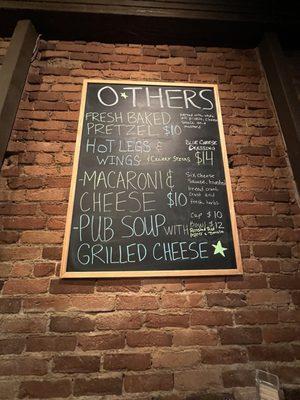 O★THERS
FRESH BAKED
PRETZEL $10
HOT LEGS &
WINGS + Celery Sticks
BLUE CHEESE
DRESSING
$14
-MACARONI &
CHEESE $10
Six cheese
bread crumb
crust and
fresh herbs
-PUB SOUP WITH
GRILLED CHEESE
Cup $10
Bowl $12
Roasted Red
& Tomato